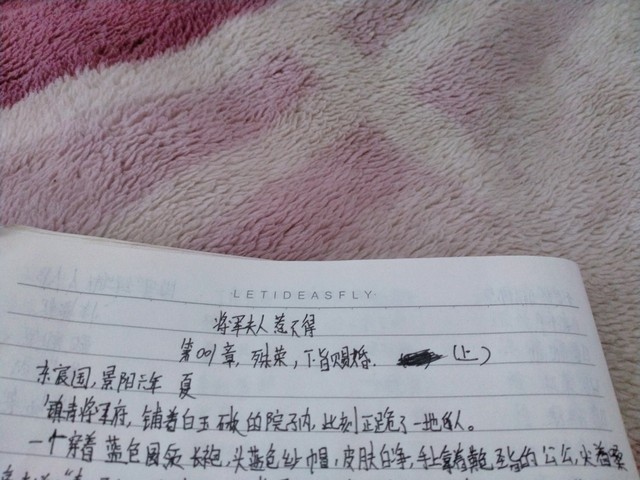 LETIDEASFLY
将军夫人惹不得
第001章,殊荣,下旨赐婚. (上)
东宸国,景阳六年 夏
镇青将军府,铺着白玉砖的院子内,此刻正跪了一地的人。
一个穿着蓝色圆领长袍,头蓝色纱帽,皮肤白净,手上拿着黄色圣旨的公公,尖着嗓